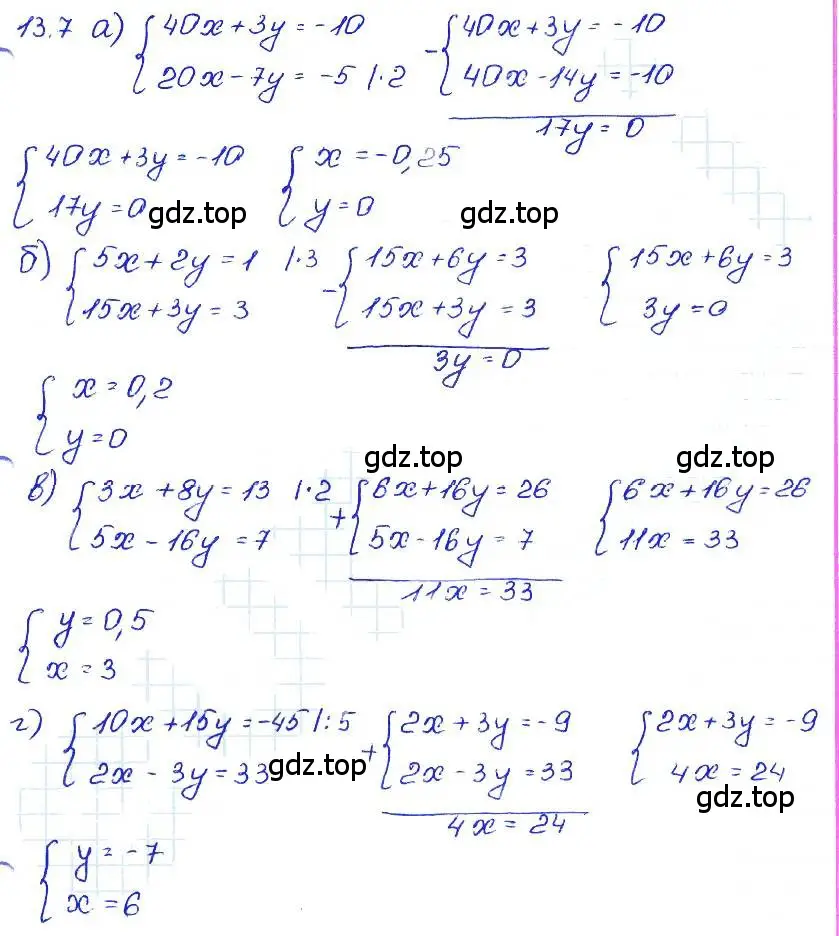 13.7 а) { 40x + 3y = -10    - { 40x + 3y = -10
20x - 7y = -5 |·2    40x - 14y = -10
17y = 0
{ 40x + 3y = -10    { x = -0,25
17y = 0 gdz.top    y = 0 gdz.top
б) { 5x + 2y = 1 |·3    - { 15x + 6y = 3    { 15x + 6y = 3
15x + 3y = 3    15x + 3y = 3    3y = 0
3y = 0
{ x = 0,2
y = 0
gdz.top gdz.top
в) { 3x + 8y = 13 |·2    + { 6x + 16y = 26    { 6x + 16y = 26
5x - 16y = 7    5x - 16y = 7    11x = 33
11x = 33
{ y = 0,5
x = 3
г) { 10x + 15y = -45 |:5    + { 2x + 3y = -9    { 2x + 3y = -9
2x - 3y = 33 gdz.top    2x - 3y = 33    4x = 24
gdz.top
4x = 24
{ y = -7
x = 6